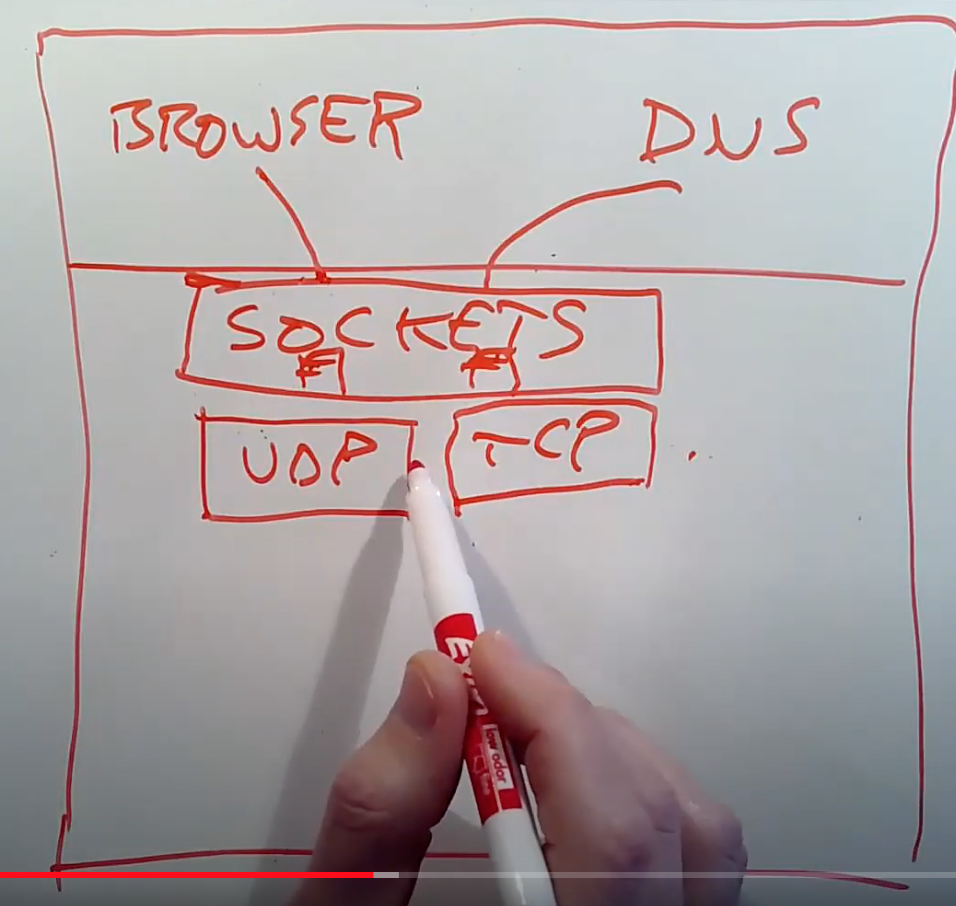 BROWSER DNS
SOCKETS
UDP TCP
low odor